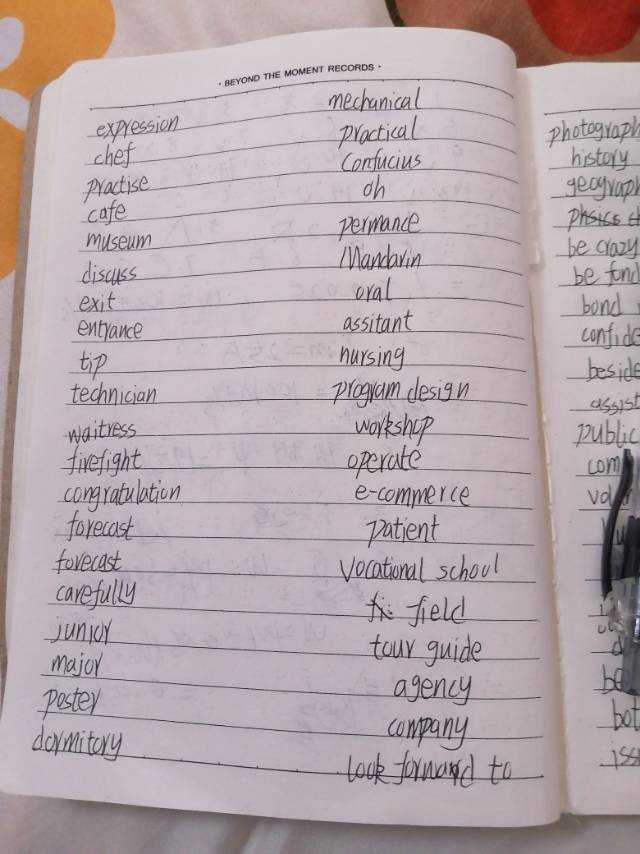 · BEYOND THE MOMENT RECORDS ·
expression
chef
practise
cafe
museum
discuss
exit
entrance
tip
technician
waitress
firefight
congratulation
forecast
forecast
carefully
junior
major
poster
dormitory
mechanical
practical
Confucius
oh
permance
Mandarin
oral
assitant
nursing
program design
workshop
operate
e-commerce
patient
vocational school
field
tour guide
agency
company
look forward to
photograph
history
geograph
phsics
be crazy
be fond
bond
confide
beside
assist
public
com
be
bot